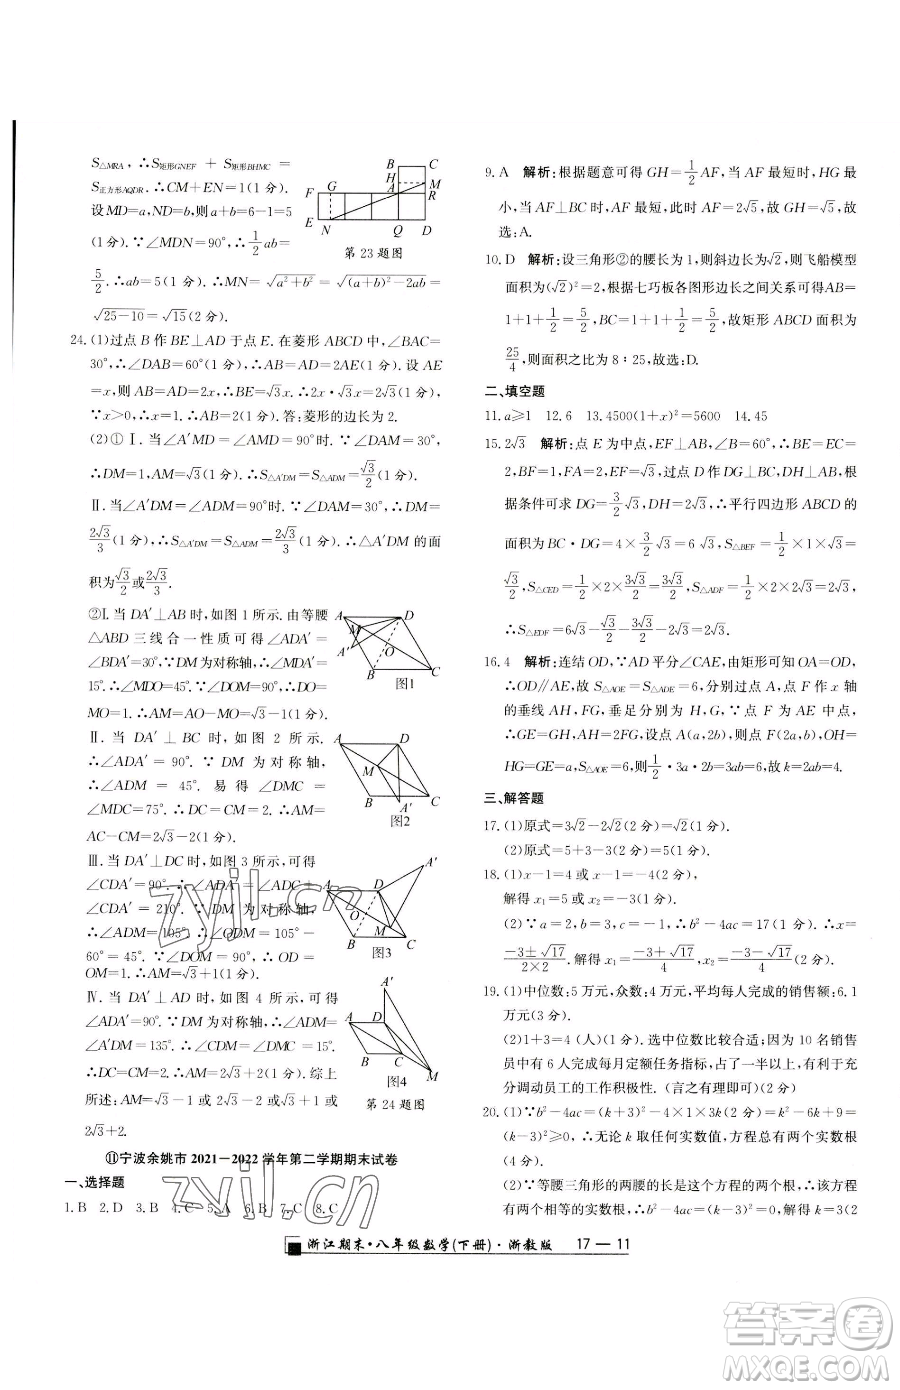 S△MRA, ∴S矩形GNEF + S矩形BHMC =
S正方形AQDR. ∴CM+EN=1(1 分).
设 MD=a,ND=b,则 a+b=6-1=5
(1 分). ∵∠MDN=90°,∴1/2 ab=
5/2. ∴ab=5(1 分). ∴MN=√(a²+b²)=√((a+b)²-2ab)=
√(25-10)=√15(2 分).
B C
F G H A M R
E N Q D
第 23 题图
24. (1)过点 B 作 BE⊥AD 于点 E. 在菱形 ABCD 中,∠BAC=
30°,∴∠DAB=60°(1 分),∴AB=AD=2AE(1 分). 设 AE
=x,则 AB=AD=2x,∴BE=√3 x. ∴√3 x·2x=2√3(1 分),
∵x>0,∴x=1. ∴AB=2(1 分). 答:菱形的边长为 2.
(2)①Ⅰ. 当∠A′MD=∠AMD=90°时. ∵∠DAM=30°,
∴DM=1,AM=√3(1 分),∴S△A′DM=S△ADM=√3/2(1 分).
Ⅱ. 当∠A′DM=∠ADM=90°时. ∵∠DAM=30°,∴DM=
2√3/3(1 分),∴S△A′DM=S△ADM=2√3/3(1 分). ∴△A′DM 的面
积为√3/2或2√3/3.
②Ⅰ. 当 DA′⊥AB 时,如图 1 所示. 由等腰
△ABD 三线合一性质可得∠ADA′=
∠BDA′=30°. ∵DM 为对称轴,∴∠MDA′=
15°. ∴∠MDO=45°. ∵∠DOM=90°,∴DO=
MO=1. ∴AM=√3-1(1 分).
A D M A′ O B C
图1
Ⅱ. 当 DA′⊥BC 时,如图 2 所示,可得
∠ADA′=90°. ∵DM 为对称轴,
∴∠ADM=45°. 易得∠DMC=
∠MDC=75°. ∴DC=CM=2. ∴AM=
AC-CM=2√3-2(1 分).
A D M B C A′
图2
Ⅲ. 当 DA′⊥DC 时,如图 3 所示,可得
∠CDA′=90°. ∴∠ADA′=∠ADC+
∠CDA′=210°. ∵DM 为对称轴,
∴∠ADM=105°. ∴∠ODM=105°-
60°=45°. ∵∠DOM=90°,∴OD=
OM=1. ∴AM=√3+1(1 分).
A D A′ O M B C
图3
Ⅳ. 当 DA′⊥AD 时,如图 4 所示,可得
∠ADA′=90°. ∵DM 为对称轴,∴∠ADM=
135°. ∴∠CDM=∠DMC=15°. ∴DC=
CM=2. ∴AM=2√3+2(1 分). 综上
所述:AM=√3-1 或 2√3-2 或√3+1 或
2√3+2.
A′ A D B C M
图4
第 24 题图
⑪宁波余姚市 2021—2022 学年第二学期期末试卷
一、选择题
1. B 2. D 3. B 4. C 5. A 6. B 7. C 8. C
9. A 解析:根据题意可得 GH=1/2 AF,当 AF 最短时,HG 最
小,当 AF⊥BC 时,AF 最短,此时 AF=2√5,故 GH=√5,故
选:A.
10. D 解析:设三角形②的腰长为 1,则斜边长为√2,则飞船模型
面积为(√2)²=2,根据七巧板各图形边长之间关系可得AB=
1+1+1/2=5/2,BC=1+1+1/2=5/2,故矩形 ABCD 面积为
25/4,则面积之比为 8∶25,故选:D.
二、填空题
11. a≥1 12. 6 13. 4500(1+x)²=5600 14. 45
15. 2√3 解析:点 E 为中点,EF⊥AB,∠B=60°,∴BE=EC=
2,BF=1,FA=2,EF=√3,过点 D作 DG⊥BC,DH⊥AB,
根据条件可求 DG=3/2√3,DH=2√3,∴平行四边形 ABCD 的
的面积为 BC·DG=4×3/2√3=6√3,S△BEF=1/2×1×√3=
√3/2,S△CED=1/2×2×3√3/2=3√3/2,S△ADF=1/2×2×2√3=2√3,
∴S△EDF=6√3-√3/2-3√3/2-2√3=2√3.
16. 4 解析:连结 OD,∵AD 平分∠CAE,由矩形可知 OA=OD,
∴OD∥AE,故 S△AOE=S△ADE=6,分别过点 A,点 F 作 x 轴
的垂线 AH,FG,垂足分别为 H,G,∵点 F 为 AE 中点,
∴GE=GH,AH=2FG,设点 A(a,2b),则点 F(2a,b),OH=
HG=GE=a,S△AOE=6,则1/2·3a·2b=6,故 k=2ab=4.
三、解答题
17. (1)原式=3√2-2√2(1 分)=√2(1 分).
(2)原式=5+3-3(2 分)=5(2 分).
18. (1)x-1=4 或 x-1=-4(2 分),
解得 x₁=5 或 x₂=-3(1 分).
(2)∵a=2,b=3,c=-1,∴b²-4ac=17(1 分),∴x=
(-3±√17)/(2×2). 解得 x₁=(-3+√17)/4,x₂=(-3-√17)/4(2 分).
19. (1)中位数:5 万元,众数:4 万元,平均每人完成的销售额:6.1
万元(3 分).
(2)1+3=4 (人)(1 分). 选中位数比较合适;因为 10 名销售
员中有 6 人完成每月定额任务指标,占了一半以上,有利于充
分调动员工的工作积极性. (言之有理即可)(2 分)
20. (1)∵b²-4ac=(k+3)²-4×1×3k(2 分)=k²-6k+9=
(k-3)²≥0(1 分),∴无论 k 取何值,方程总有实数根(1
分).
(2)∵等腰三角形的两腰的长是这个方程的两个根,∴方程有
两个相等的实数根(1 分),∴k=3(1 分),原方程为 x²-6x+
浙江期末·八年级数学(下册)·浙教版 17—11
zyjl.cn
zyjl.cn
答案圈
MXQE.COM